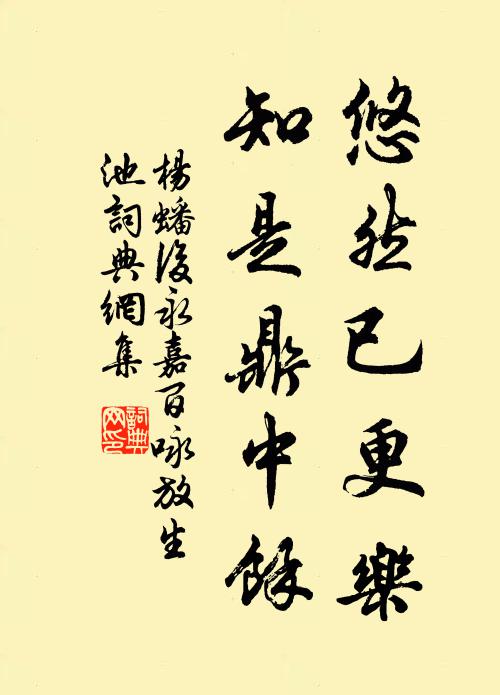 悠然已更樂
知是鼎中餘
楊蟠後永嘉百咏放生
池詞典網集
詞典
网印